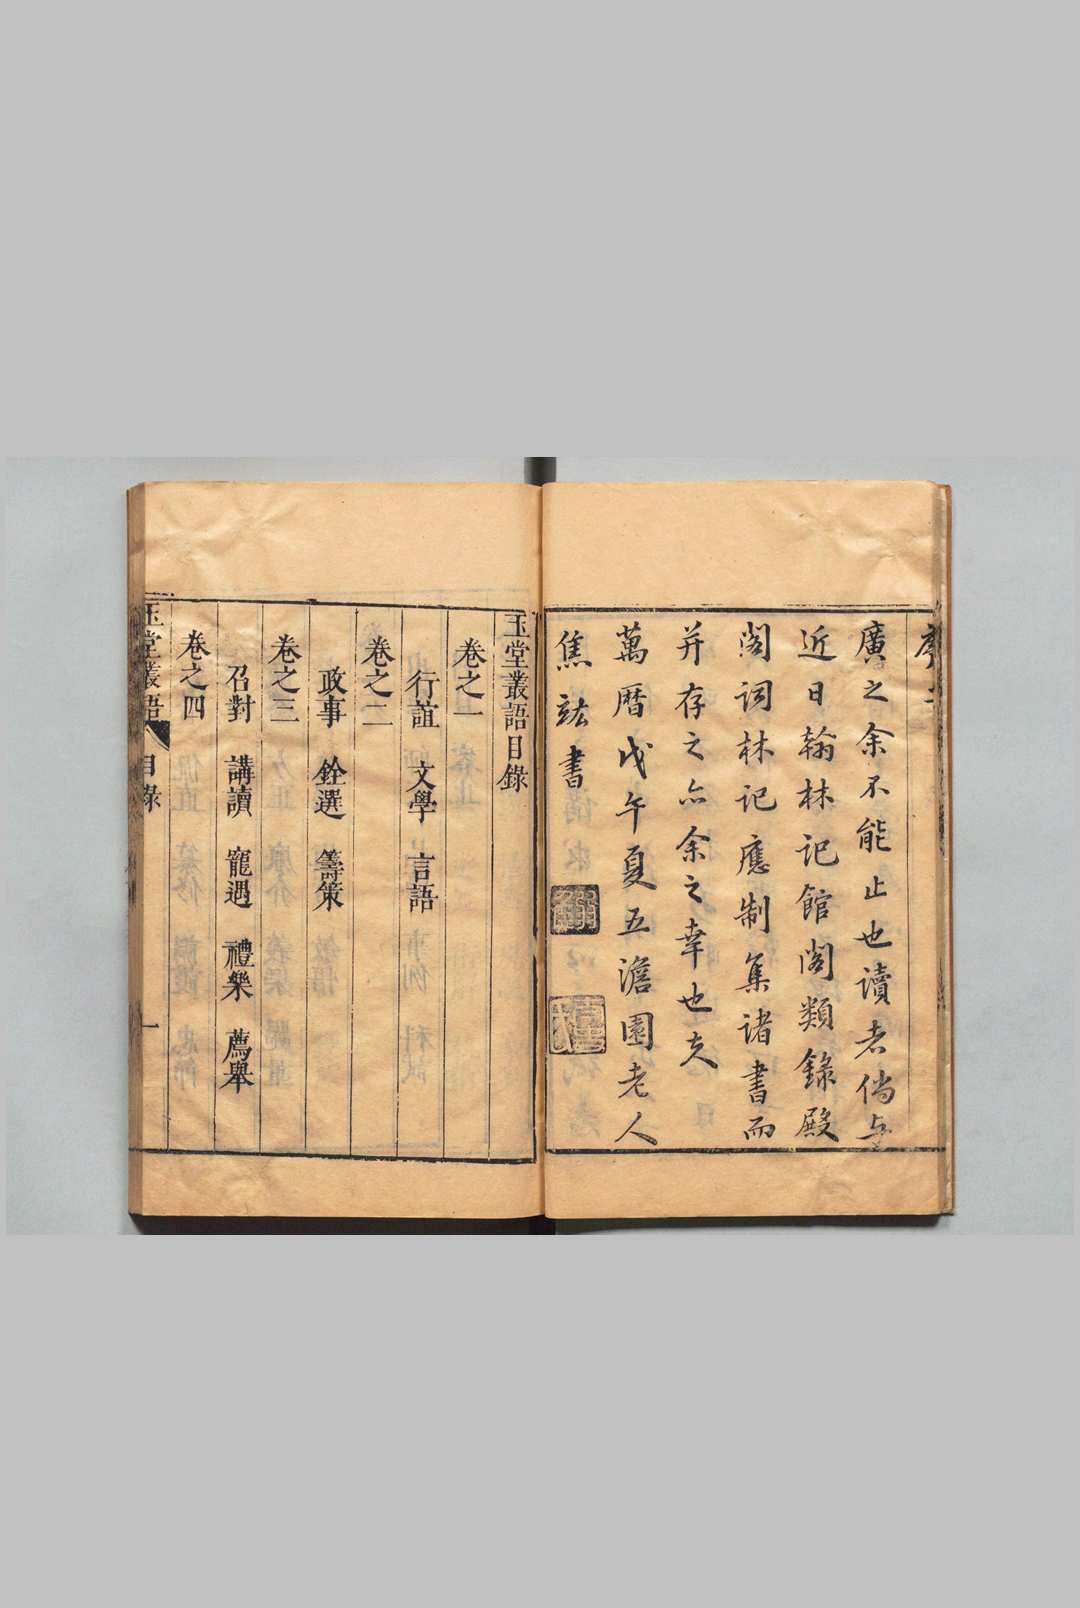 廣之余不能止也讀者倘與
近日翰林記館閣類錄殿
閣詞林記應制集諸書而
并存之亦余之幸也夫
萬曆戊午夏五澹園老人
焦竑書
玉堂叢語目錄
卷之一
行誼 文學 言語
卷之二
政事 銓選 籌策
卷之三
召對 講讀 寵遇 禮樂 薦舉
卷之四
玉堂叢語 目錄 一